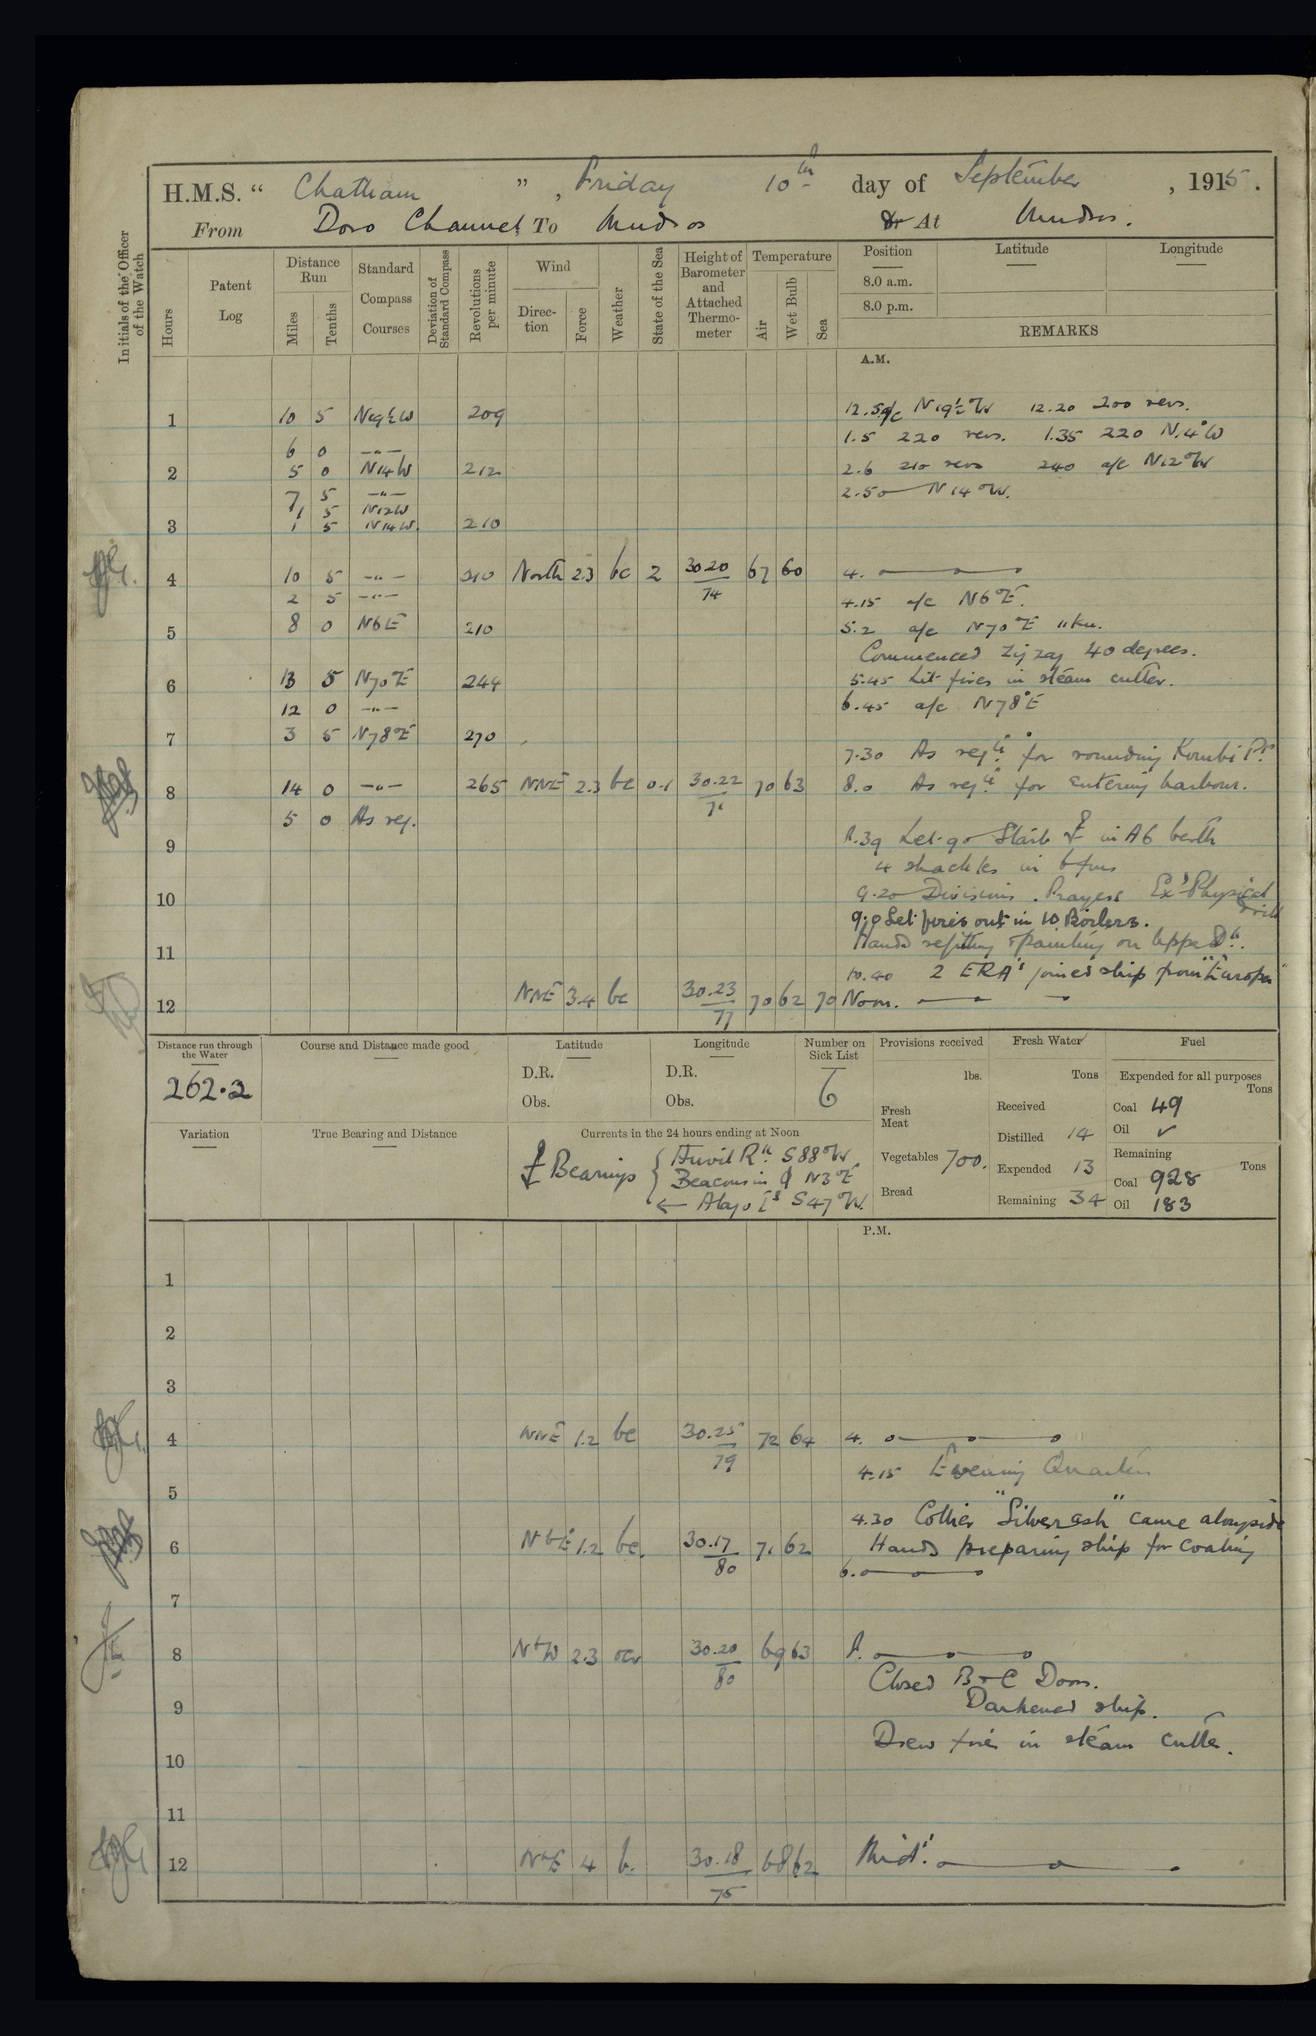 H.M.S. “ Chatham ”, Friday 10th day of September, 1915.
From Doro Channel To Mudros Or At Mudros.
Initials of the Officer of the Watch
Hours
Patent Log
Distance Run
Miles
Tenths
Standard Compass Courses
Deviation of Standard Compass
Revolutions per minute
Wind
Direction
Force
Weather
State of the Sea
Height of Barometer and Attached Thermometer
Temperature
Air
Wet Bulb
Sea
Position Latitude Longitude
8.0 a.m.
8.0 p.m.
REMARKS
A.M.
1 10 5 N19½W 209 12.5 a/c N19½°W 12.20 200 revs.
6 0 -"- 1.5 220 revs. 1.35 220 N14°W
2 5 0 N14W 212 2.6 210 revs 240 a/c N12°W
7 5 -"- 2.50 N14°W.
1 5 N12W
3 1 5 N14W. 210
4 10 5 -"- 210 North 2.3 bc 2 30.20 67 60 4.
74
2 5 -"- 4.15 a/c N6°E.
5 8 0 N6E 210 5.2 a/c N70°E
Commenced zig zag 40 degrees.
6 13 5 N70°E 244 5.45 Lit fires in steam cutter.
12 0 -"- 6.45 a/c N78°E
7 3 5 N78°E 270
7.30 As reqd. for rounding Kombi Pt.
8 14 0 -"- 265 NNE 2.3 bc 0.1 30.22 70 63 8.0 As reqd. for entering harbour.
71
5 0 As req.
9 8.39 Let go Starb in A6 berth
4 shackles in 6 fms
10 9.20 Divisions. Prayers. Exd Physical drill
9.0 Let fires out in 10 Boilers.
11 Hands refitting & painting on upper Dk.
10.40 2 ERA's joined ship from "Europa"
12 NNE 3.4 bc 30.23 70 62 70 Noon.
77
Distance run through the Water
262.2
Course and Distance made good
Latitude
D.R.
Obs.
Longitude
D.R.
Obs.
Number on Sick List
6
Provisions received
lbs.
Fresh Meat
Vegetables 700.
Bread
Fresh Water
Tons
Received
Distilled 14
Expended 13
Remaining 34
Fuel
Expended for all purposes
Tons
Coal 49
Oil ✓
Remaining
Tons
Coal 928
Oil 183
Variation
True Bearing and Distance
Currents in the 24 hours ending at Noon
Bearings { Anvil Rk. S88°W
Beacons in N3°E
Alago Is S47°W.
P.M.
1
2
3
4 NNE 1.2 bc 30.25 72 64 4.
79
4.15 Evening Quarters
5
4.30 Collier "Silverash" came alongside
6 NbE 1.2 bc. 30.17 71 62 Hands preparing ship for coaling
80
6.
7
8 NbW 2.3 30.20 69 63 8.
80
Closed B & C Doors.
9 Darkened ship.
Drew fires in steam cutter.
10
11
12 NbE 4 b. 30.18 68 62 Midt.
75